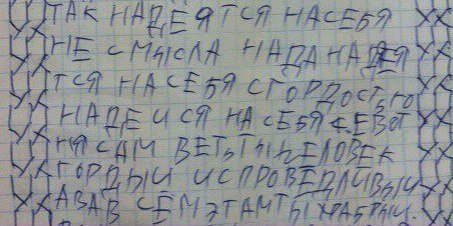 ТАК НАДЕЯТСЯ НАСЕБЯ
НЕ СМЫСЛА НАДА НАДЕЯ
ТСЯ НА СЕБЯ СГОРДОСТЬЮ
НАДЕИСЯ НА СЕБЯ СЕВОТ
НЯ САМ ВЕТЬ ТЫ ЧЕЛОВЕК
ГОРДЫЙ ИСПРОВЕДЛИВЫЙ
АВАВ СЁМ ЭТАМ ТЫ ХРАБРЫЙ.